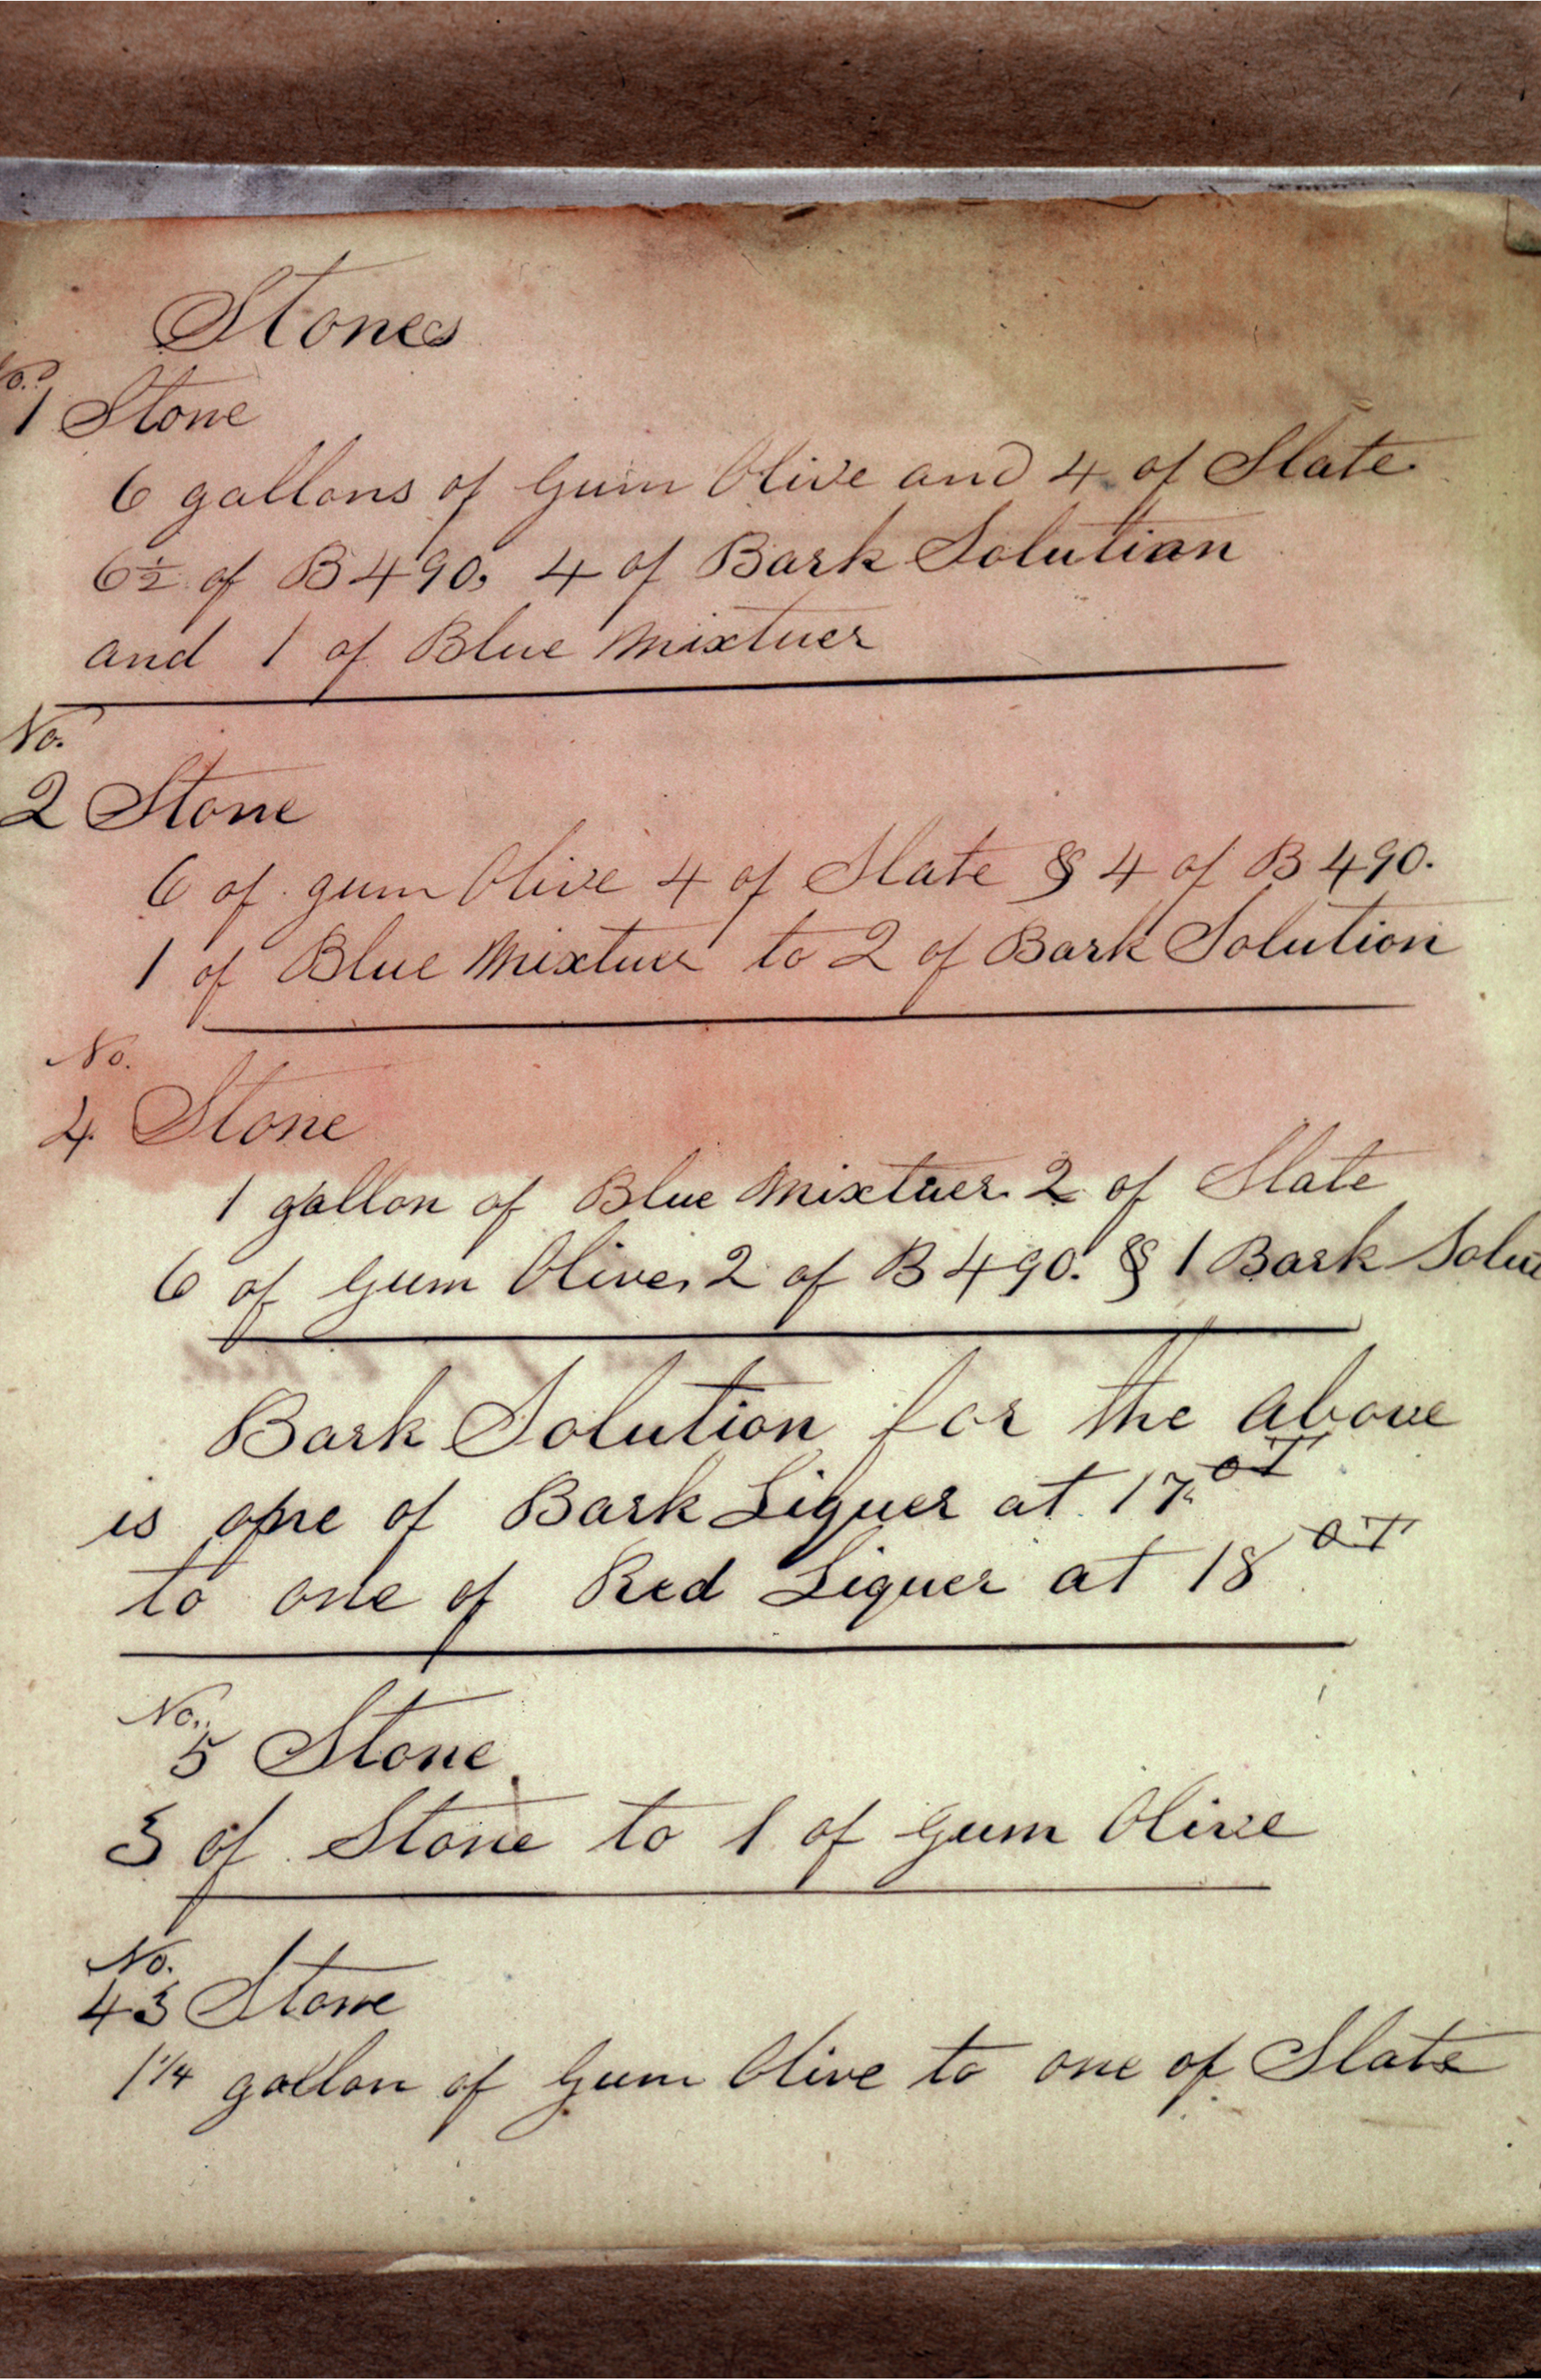 Stones
No.
1 Stone
6 gallons of Gum Olive and 4 of Slate
6½ of B490, 4 of Bark Solution
and 1 of Blue Mixtuer
No.
2 Stone
6 of gum Olive 4 of Slate & 4 of B 490.
1 of Blue Mixtuer to 2 of Bark Solution
No.
4 Stone
1 gallon of Blue Mixtuer 2 of Slate
6 of Gum Olive, 2 of B 490. & 1 Bark Solu
Bark Solution for the above
is one of Bark Liquer at 17 oT
to one of Red Liquer at 18 oT
No.
5 Stone
3 of Stone to 1 of Gum Olive
No.
43 Stone
1¼ gallon of Gum Olive to one of Slate